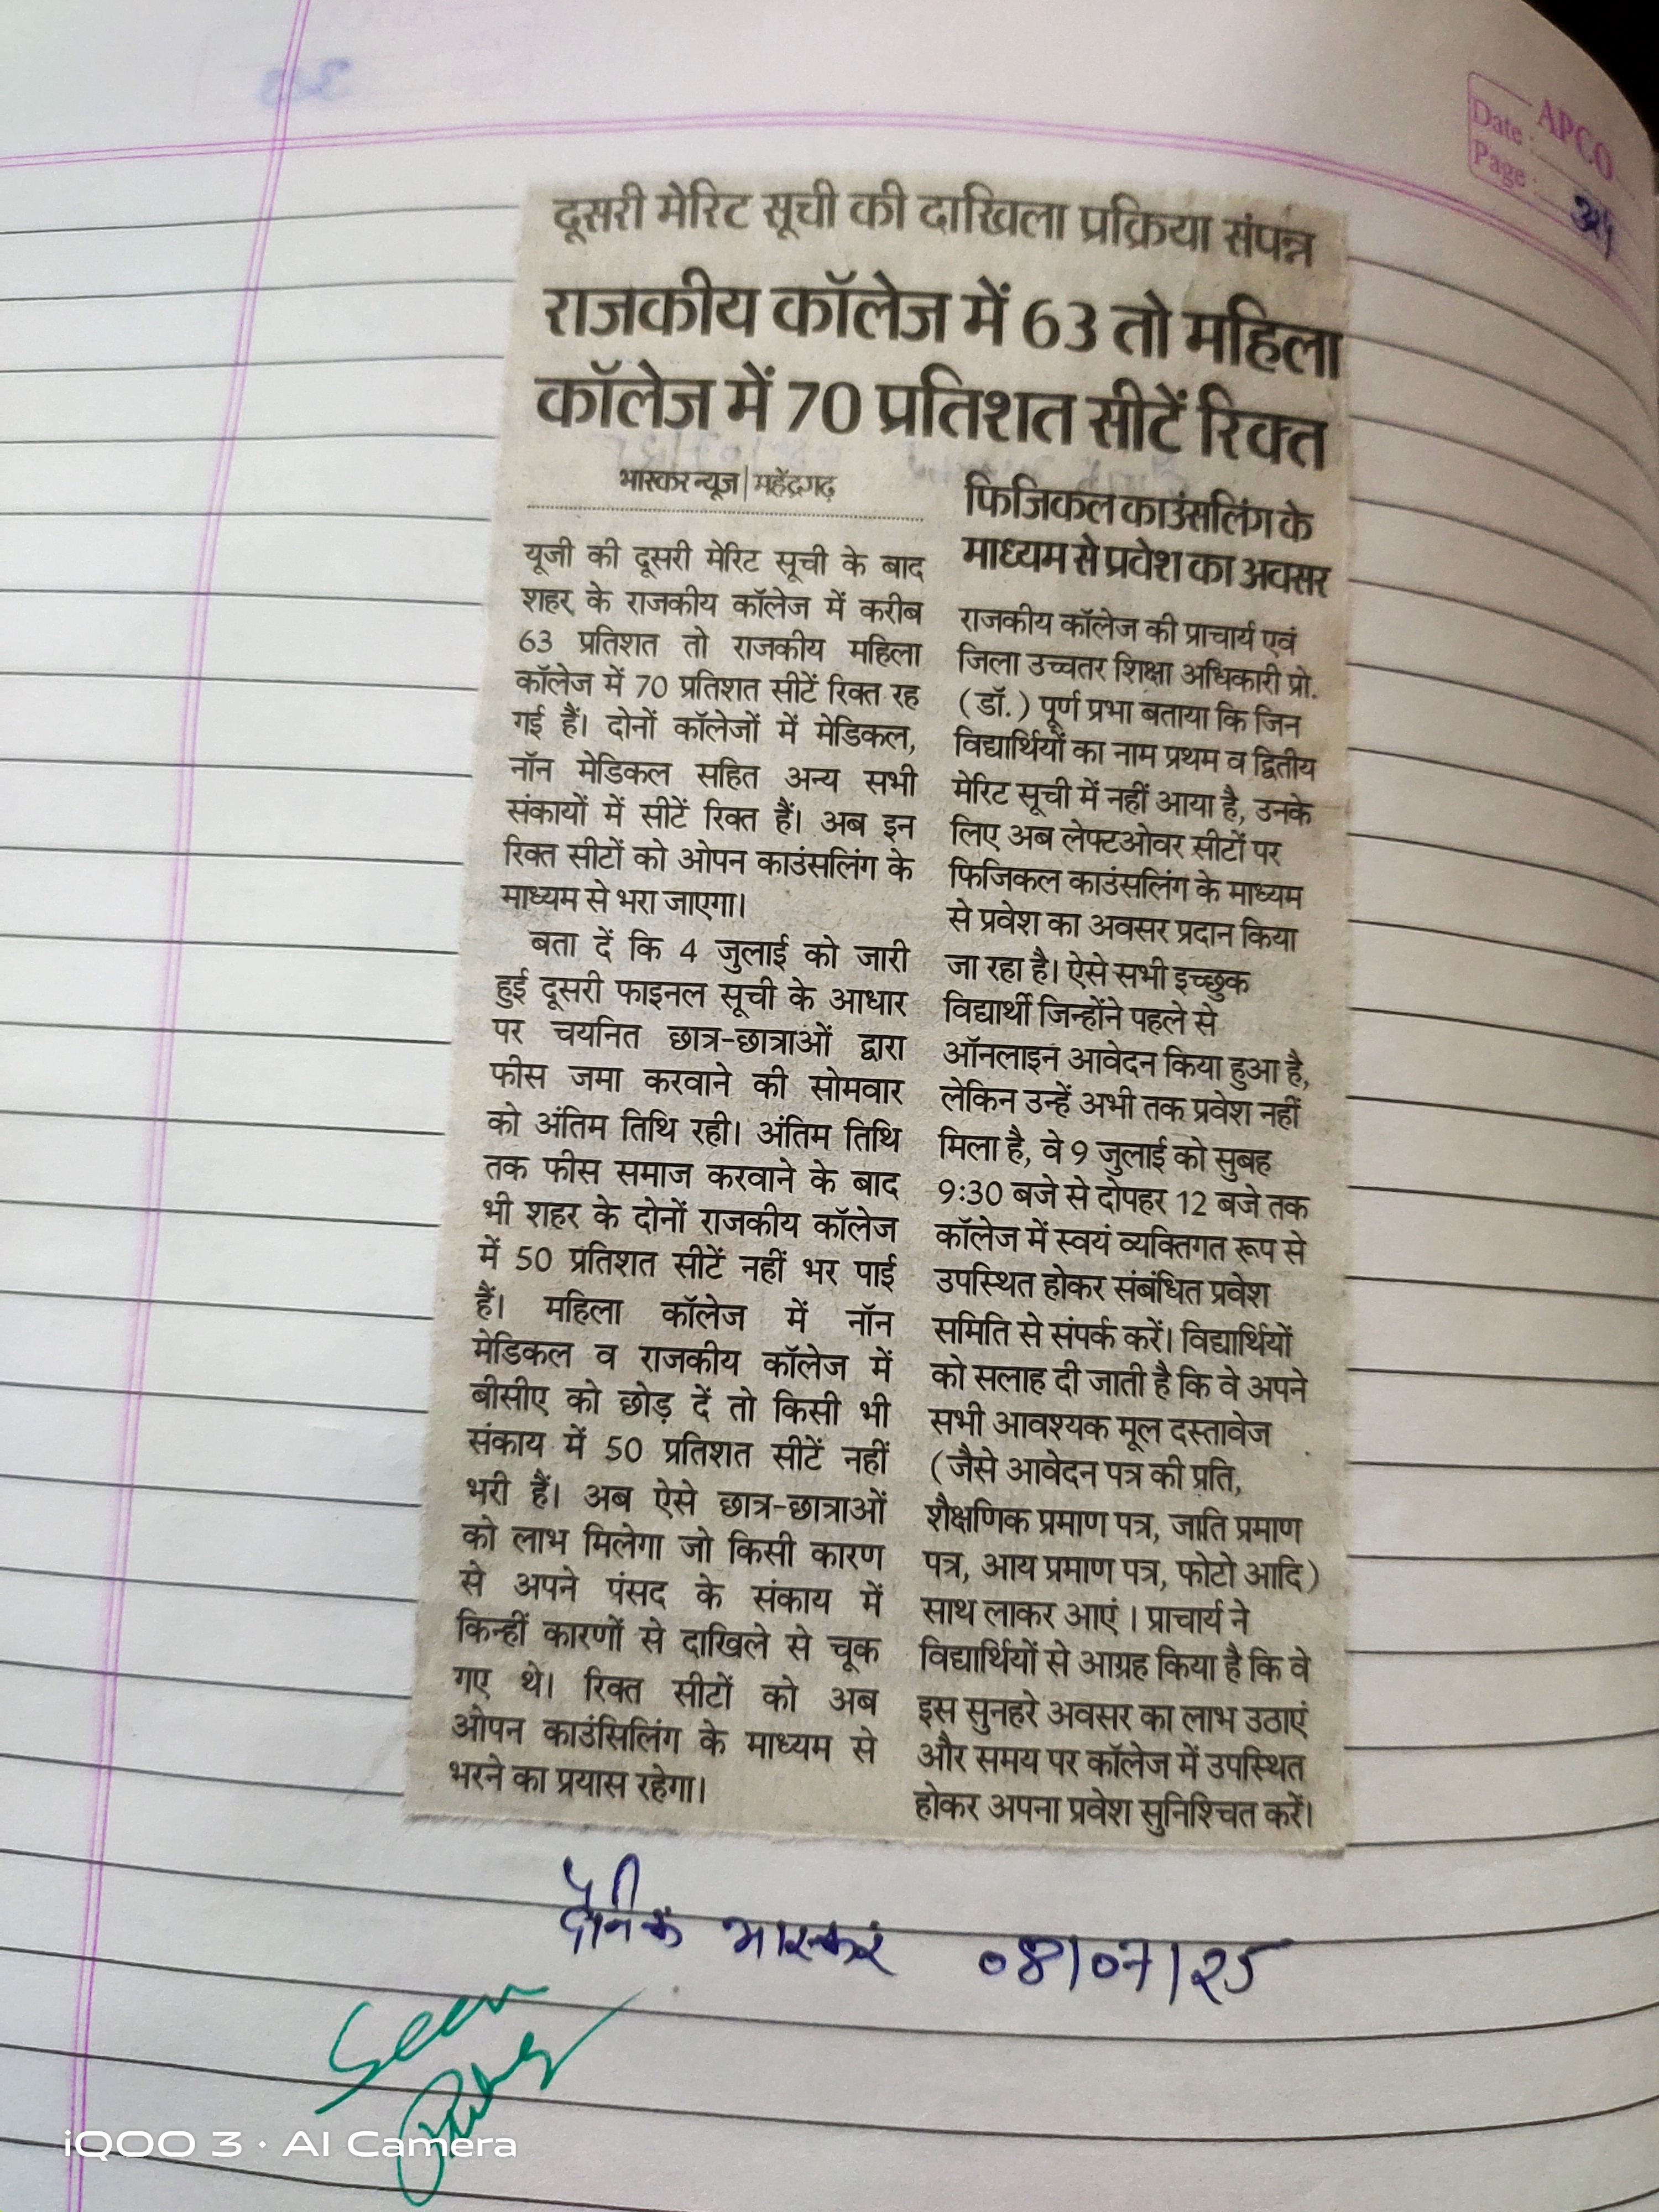 APCO
Date :
Page :
दूसरी मेरिट सूची की दाखिला प्रक्रिया संपन्न
राजकीय कॉलेज में 63 तो महिला
कॉलेज में 70 प्रतिशत सीटें रिक्त
भास्कर न्यूज | महेंद्रगढ़
यूजी की दूसरी मेरिट सूची के बाद
शहर के राजकीय कॉलेज में करीब
63 प्रतिशत तो राजकीय महिला
कॉलेज में 70 प्रतिशत सीटें रिक्त रह
गई हैं। दोनों कॉलेजों में मेडिकल,
नॉन मेडिकल सहित अन्य सभी
संकायों में सीटें रिक्त हैं। अब इन
रिक्त सीटों को ओपन काउंसलिंग के
माध्यम से भरा जाएगा।
बता दें कि 4 जुलाई को जारी
हुई दूसरी फाइनल सूची के आधार
पर चयनित छात्र-छात्राओं द्वारा
फीस जमा करवाने की सोमवार
को अंतिम तिथि रही। अंतिम तिथि
तक फीस समाज करवाने के बाद
भी शहर के दोनों राजकीय कॉलेज
में 50 प्रतिशत सीटें नहीं भर पाई
हैं। महिला कॉलेज में नॉन
मेडिकल व राजकीय कॉलेज में
बीसीए को छोड़ दें तो किसी भी
संकाय में 50 प्रतिशत सीटें नहीं
भरी हैं। अब ऐसे छात्र-छात्राओं
को लाभ मिलेगा जो किसी कारण
से अपने पंसद के संकाय में
किन्हीं कारणों से दाखिले से चूक
गए थे। रिक्त सीटों को अब
ओपन काउंसिलिंग के माध्यम से
भरने का प्रयास रहेगा।
फिजिकल काउंसलिंग के
माध्यम से प्रवेश का अवसर
राजकीय कॉलेज की प्राचार्य एवं
जिला उच्चतर शिक्षा अधिकारी प्रो.
(डॉ.) पूर्ण प्रभा बताया कि जिन
विद्यार्थियों का नाम प्रथम व द्वितीय
मेरिट सूची में नहीं आया है, उनके
लिए अब लेफ्टओवर सीटों पर
फिजिकल काउंसलिंग के माध्यम
से प्रवेश का अवसर प्रदान किया
जा रहा है। ऐसे सभी इच्छुक
विद्यार्थी जिन्होंने पहले से
ऑनलाइन आवेदन किया हुआ है,
लेकिन उन्हें अभी तक प्रवेश नहीं
मिला है, वे 9 जुलाई को सुबह
9:30 बजे से दोपहर 12 बजे तक
कॉलेज में स्वयं व्यक्तिगत रूप से
उपस्थित होकर संबंधित प्रवेश
समिति से संपर्क करें। विद्यार्थियों
को सलाह दी जाती है कि वे अपने
सभी आवश्यक मूल दस्तावेज
(जैसे आवेदन पत्र की प्रति,
शैक्षणिक प्रमाण पत्र, जाति प्रमाण
पत्र, आय प्रमाण पत्र, फोटो आदि)
साथ लाकर आएं । प्राचार्य ने
विद्यार्थियों से आग्रह किया है कि वे
इस सुनहरे अवसर का लाभ उठाएं
और समय पर कॉलेज में उपस्थित
होकर अपना प्रवेश सुनिश्चित करें।
दैनिक भास्कर 08/07/25
Seen
iQOO 3 · AI Camera